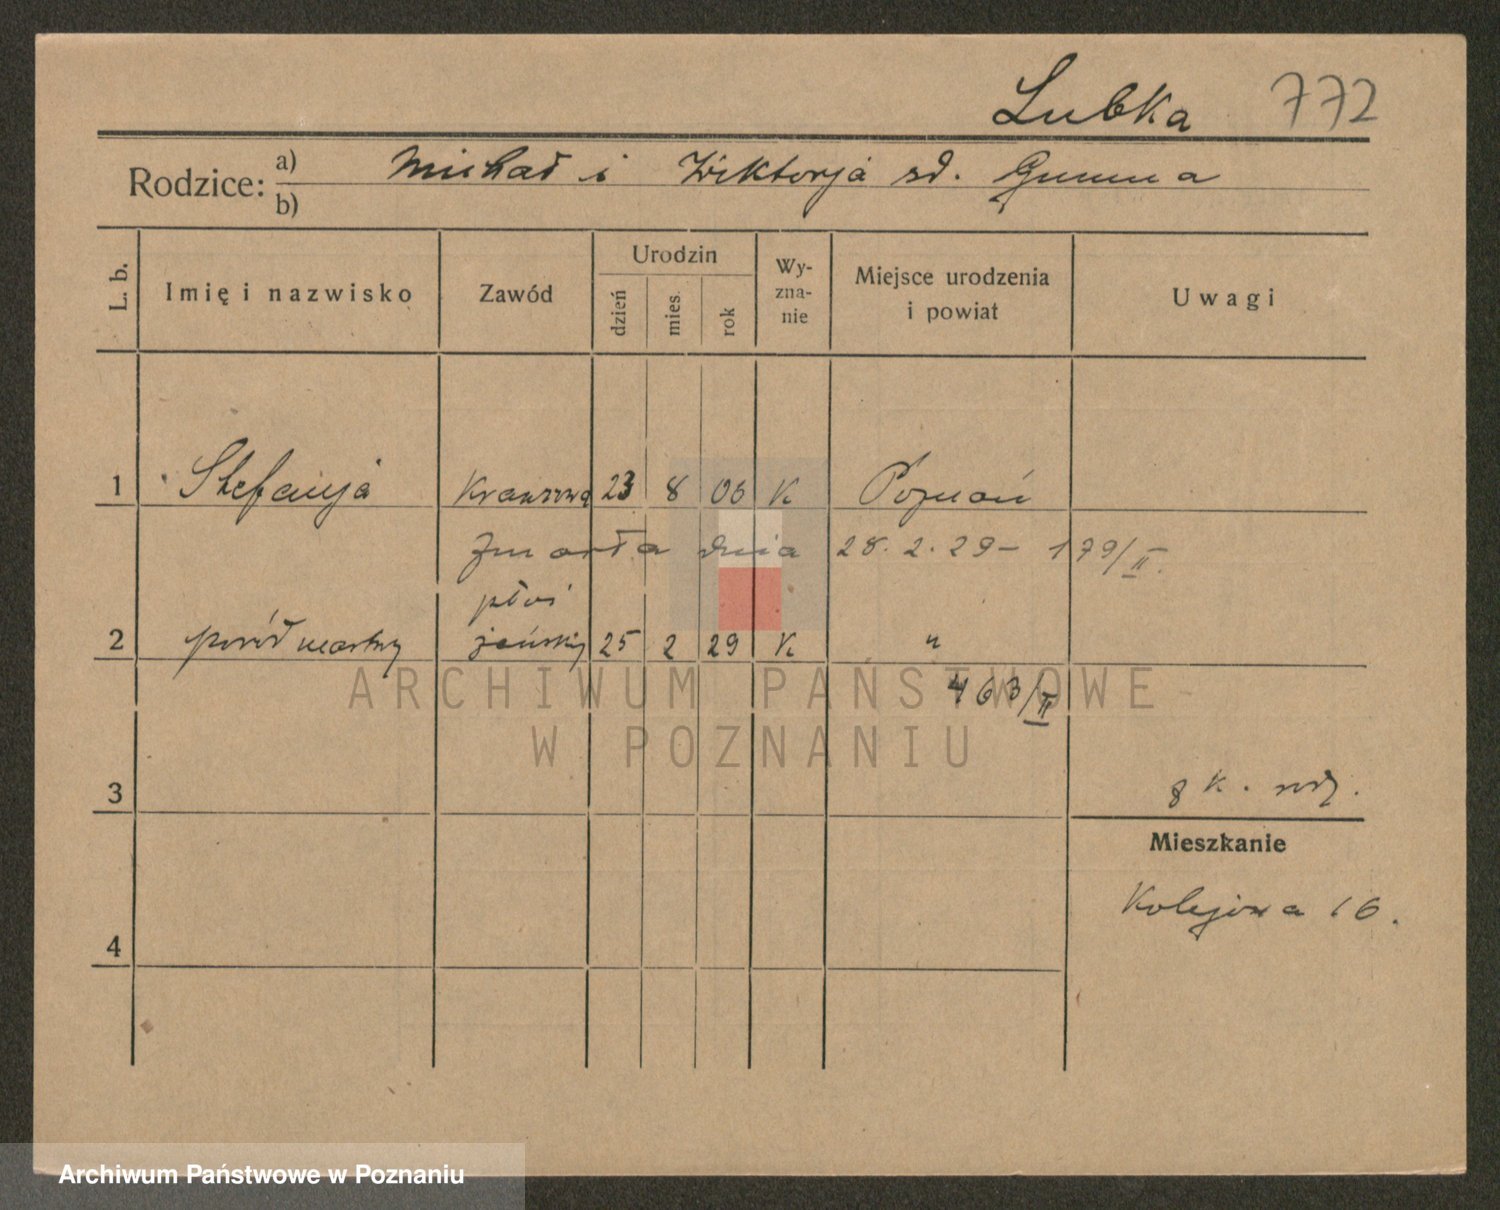 Lubka 772
Rodzice: a) Michał i Wiktorja zd. Gumna
b)
L. b. Imię i nazwisko Zawód Urodzin dzień mies. rok Wyznanie Miejsce urodzenia i powiat Uwagi
1 Stefanja Krawcowa 23 8 06 K Poznań
Zmarła dnia 28. 2. 29 – 179/II.
płci
2 poród martwy żeńskiej 25 2 29 K "
463/II
ARCHIWUM PAŃSTWOWE
W POZNANIU
3
Mieszkanie
Kolejowa 16.
4
Archiwum Państwowe w Poznaniu